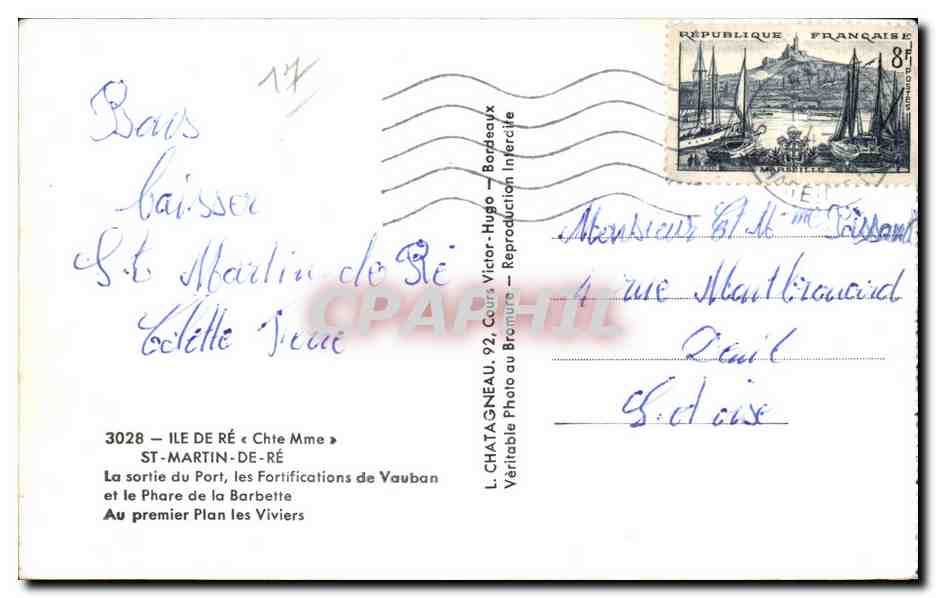 17
Bons
baisser
St Martin de Ré
Colette
3028 — ILE DE RÉ « Chte Mme »
ST-MARTIN-DE-RÉ
La sortie du Port, les Fortifications de Vauban
et le Phare de la Barbette
Au premier Plan les Viviers
L. CHATAGNEAU. 92, Cours Victor-Hugo — Bordeaux
Véritable Photo au Bromure — Reproduction Interdite
RÉPUBLIQUE FRANÇAISE
8F
POSTES
MARSEILLE
Monsieur Et Mme
4 rue
Deuil
S. et oise
CPAPHIL